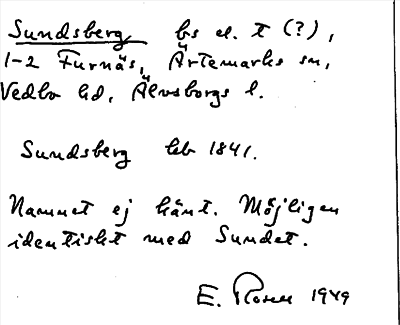 Sundsberg bs el. t (?),
1-2 Furnäs, Ärtemarks sn,
Vedbo hd, Älvsborgs l.
Sundsberg hb 1841.
Namnet ej känt. Möjligen
identiskt med Sundet.
E. Rosell 1949